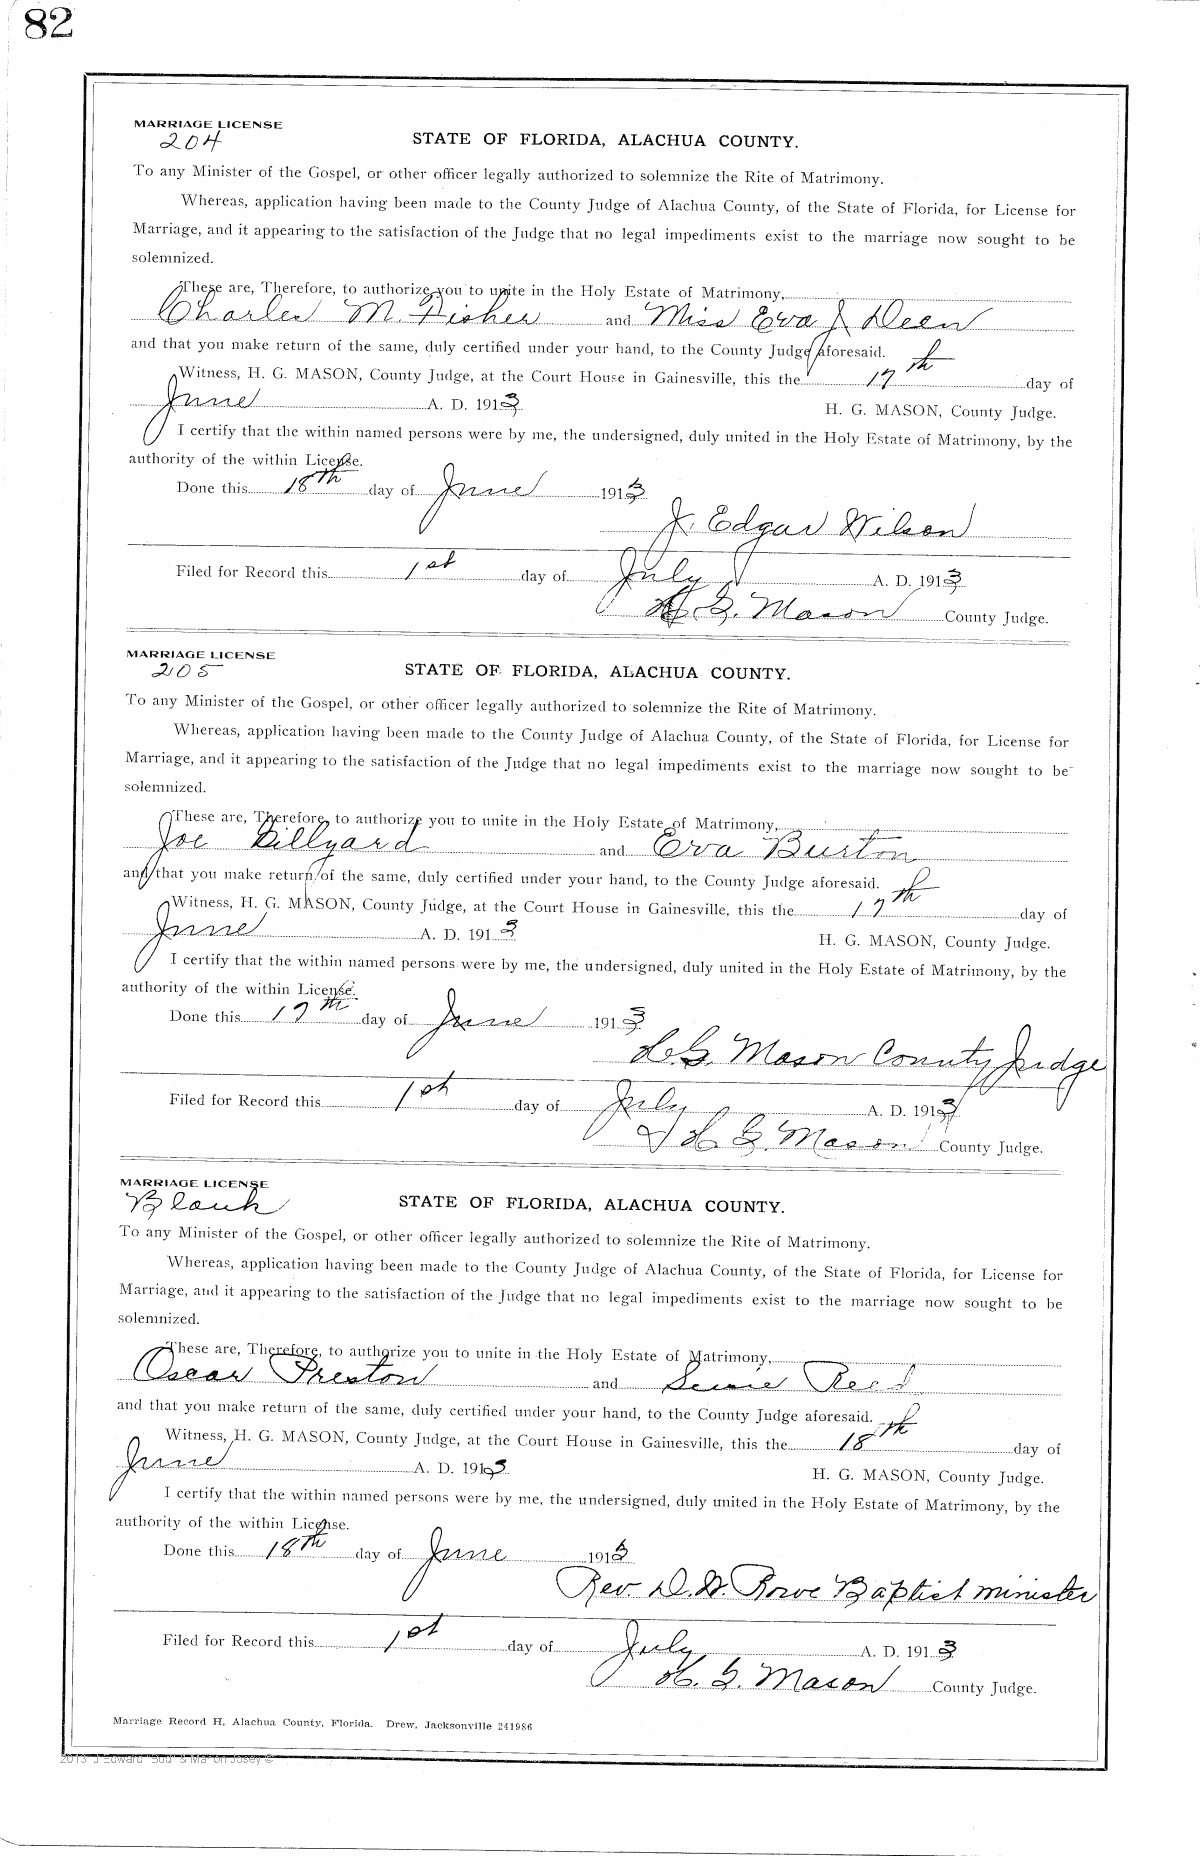 82
MARRIAGE LICENSE
204
STATE OF FLORIDA, ALACHUA COUNTY.
To any Minister of the Gospel, or other officer legally authorized to solemnize the Rite of Matrimony.
Whereas, application having been made to the County Judge of Alachua County, of the State of Florida, for License for
Marriage, and it appearing to the satisfaction of the Judge that no legal impediments exist to the marriage now sought to be
solemnized.
These are, Therefore, to authorize you to unite in the Holy Estate of Matrimony,
Charles M. Fisher and Miss Eva J Deen
and that you make return of the same, duly certified under your hand, to the County Judge aforesaid.
Witness, H. G. MASON, County Judge, at the Court House in Gainesville, this the 17th day of
June A. D. 1913 H. G. MASON, County Judge.
I certify that the within named persons were by me, the undersigned, duly united in the Holy Estate of Matrimony, by the
authority of the within License.
Done this 18th day of June 1913
J. Edgar Wilson
Filed for Record this 1st day of July A. D. 1913
H. G. Mason County Judge.
MARRIAGE LICENSE
205
STATE OF FLORIDA, ALACHUA COUNTY.
To any Minister of the Gospel, or other officer legally authorized to solemnize the Rite of Matrimony.
Whereas, application having been made to the County Judge of Alachua County, of the State of Florida, for License for
Marriage, and it appearing to the satisfaction of the Judge that no legal impediments exist to the marriage now sought to be
solemnized.
These are, Therefore, to authorize you to unite in the Holy Estate of Matrimony,
Joe Billyard and Eva Burton
and that you make return of the same, duly certified under your hand, to the County Judge aforesaid.
Witness, H. G. MASON, County Judge, at the Court House in Gainesville, this the 17th day of
June A. D. 1913 H. G. MASON, County Judge.
I certify that the within named persons were by me, the undersigned, duly united in the Holy Estate of Matrimony, by the
authority of the within License.
Done this 17th day of June 1913
H. G. Mason County Judge
Filed for Record this 1st day of July A. D. 1913
H G. Mason County Judge.
MARRIAGE LICENSE
Blank
STATE OF FLORIDA, ALACHUA COUNTY.
To any Minister of the Gospel, or other officer legally authorized to solemnize the Rite of Matrimony.
Whereas, application having been made to the County Judge of Alachua County, of the State of Florida, for License for
Marriage, and it appearing to the satisfaction of the Judge that no legal impediments exist to the marriage now sought to be
solemnized.
These are, Therefore, to authorize you to unite in the Holy Estate of Matrimony,
Oscar Preston and Susie Reed
and that you make return of the same, duly certified under your hand, to the County Judge aforesaid.
Witness, H. G. MASON, County Judge, at the Court House in Gainesville, this the 18th day of
June A. D. 1913 H. G. MASON, County Judge.
I certify that the within named persons were by me, the undersigned, duly united in the Holy Estate of Matrimony, by the
authority of the within License.
Done this 18th day of June 1913
Rev D. W. Rowe Baptist minister
Filed for Record this 1st day of July A. D. 1913
H. G. Mason County Judge.
Marriage Record H, Alachua County, Florida. Drew, Jacksonville 241986
2013 J Edward "Bud" & Marion Josey ©